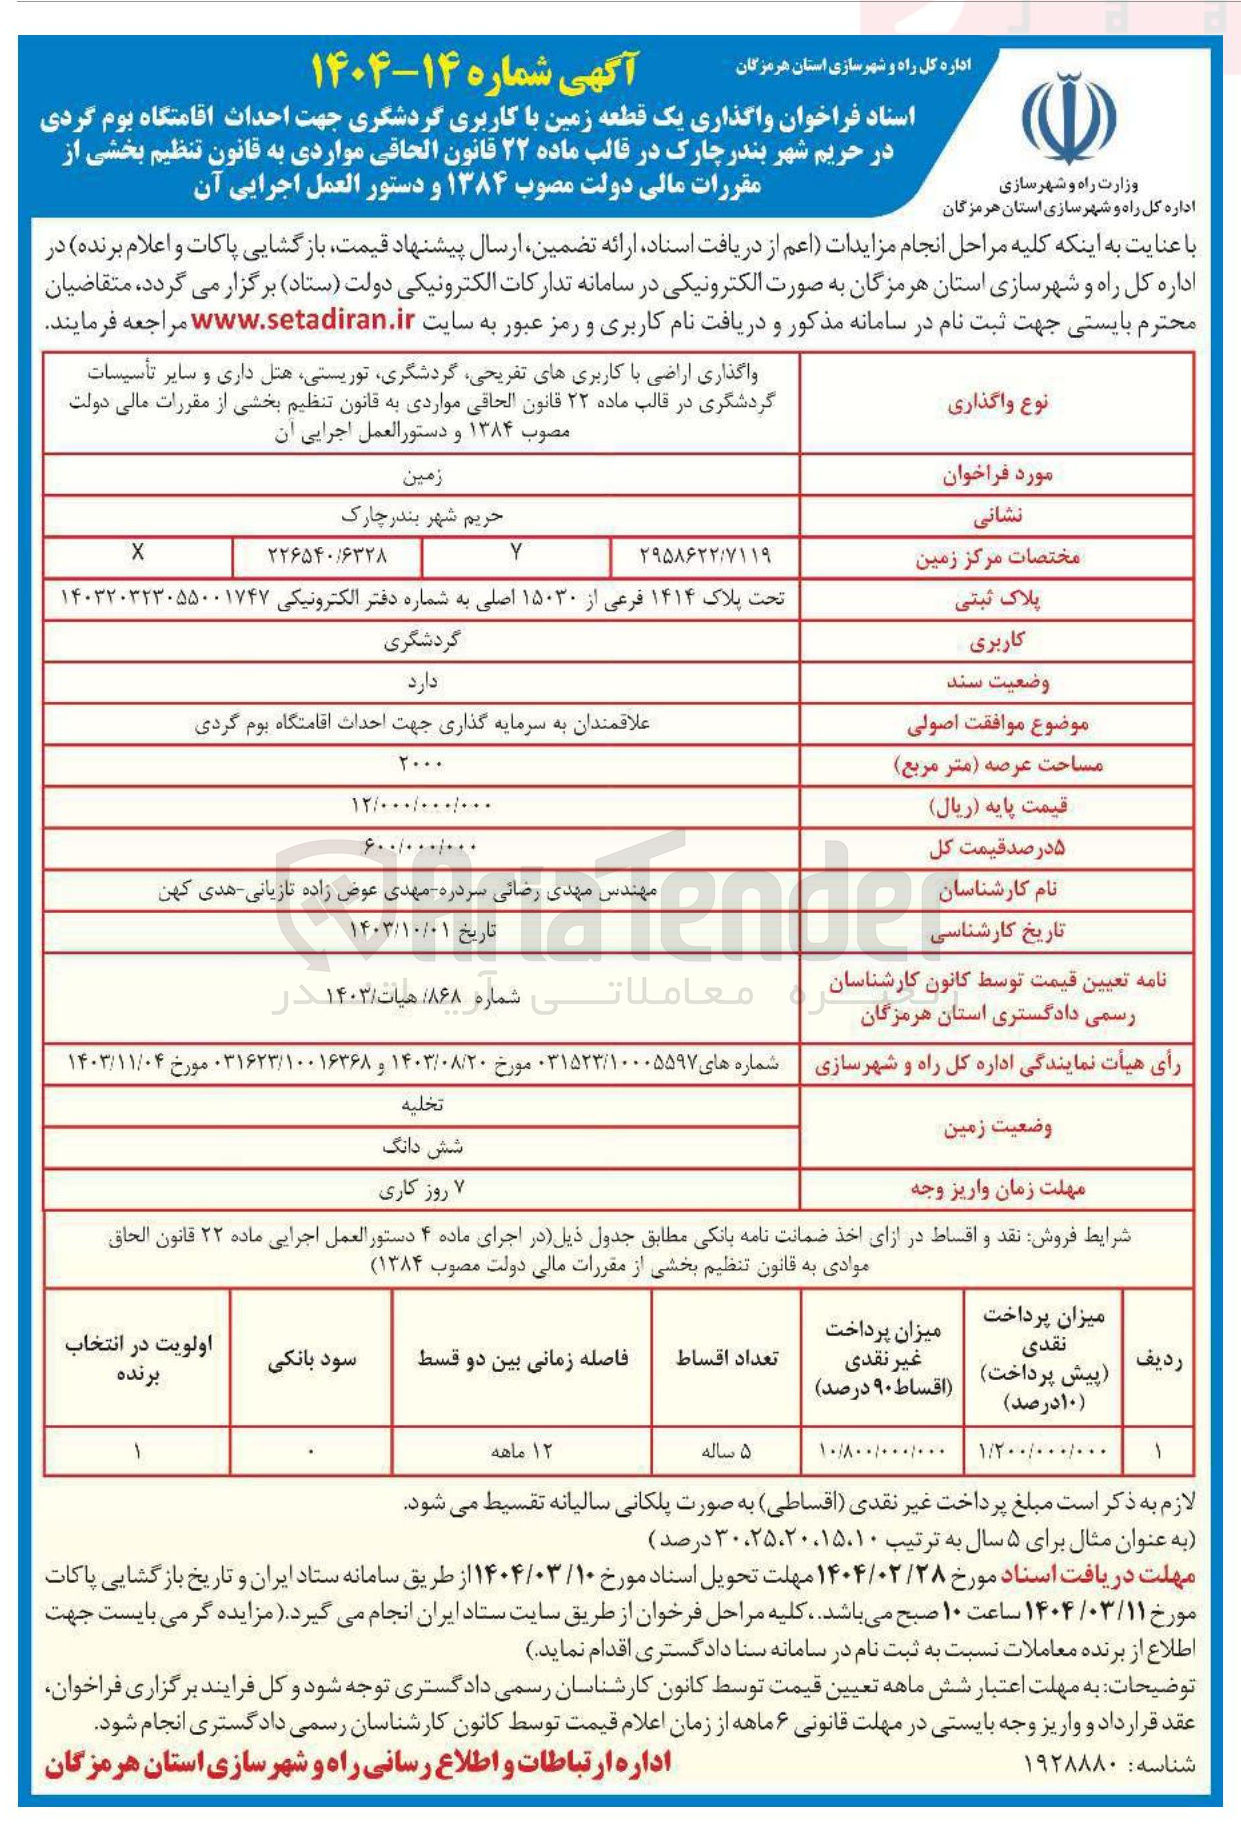 اداره کل راه و شهرسازی استان هرمزگان
آگهی شماره ۱۴-۱۴۰۴
وزارت راه و شهرسازی
اداره کل راه و شهرسازی استان هرمزگان
اسناد فراخوان واگذاری یک قطعه زمین با کاربری گردشگری جهت احداث اقامتگاه بوم گردی
در حریم شهر بندرچارک در قالب ماده ۲۲ قانون الحاقی مواردی به قانون تنظیم بخشی از
مقررات مالی دولت مصوب ۱۳۸۴ و دستور العمل اجرایی آن
با عنایت به اینکه کلیه مراحل انجام مزایدات (اعم از دریافت اسناد، ارائه تضمین، ارسال پیشنهاد قیمت، بازگشایی پاکات و اعلام برنده) در
اداره کل راه و شهرسازی استان هرمزگان به صورت الکترونیکی در سامانه تدارکات الکترونیکی دولت (ستاد) برگزار می گردد، متقاضیان
محترم بایستی جهت ثبت نام در سامانه مذکور و دریافت نام کاربری و رمز عبور به سایت www.setadiran.ir مراجعه فرمایند.
نوع واگذاری
واگذاری اراضی با کاربری های تفریحی، گردشگری، توریستی، هتل داری و سایر تأسیسات
گردشگری در قالب ماده ۲۲ قانون الحاقی مواردی به قانون تنظیم بخشی از مقررات مالی دولت
مصوب ۱۳۸۴ و دستورالعمل اجرایی آن
مورد فراخوان زمین
نشانی حریم شهر بندرچارک
مختصات مرکز زمین ۲۹۵۸۶۲۲/۷۱۱۹ Y ۲۲۶۵۴۰/۶۳۲۸ X
پلاک ثبتی تحت پلاک ۱۴۱۴ فرعی از ۱۵۰۳۰ اصلی به شماره دفتر الکترونیکی ۱۴۰۳۲۰۳۲۳۰۵۵۰۰۱۷۴۷
کاربری گردشگری
وضعیت سند دارد
موضوع موافقت اصولی علاقمندان به سرمایه گذاری جهت احداث اقامتگاه بوم گردی
مساحت عرصه (متر مربع) ۲۰۰۰
قیمت پایه (ریال) ۱۲/۰۰۰/۰۰۰/۰۰۰
۵درصدقیمت کل ۶۰۰/۰۰۰/۰۰۰
نام کارشناسان مهندس مهدی رضائی سردره-مهدی عوض زاده تازیانی-هدی کهن
تاریخ کارشناسی تاریخ ۱۴۰۳/۱۰/۰۱
نامه تعیین قیمت توسط کانون کارشناسان
رسمی دادگستری استان هرمزگان
شماره ۸۶۸/هیات/۱۴۰۳
رأی هیأت نمایندگی اداره کل راه و شهرسازی شماره های۰۳۱۵۲۳/۱۰۰۰۵۵۹۷ مورخ ۱۴۰۳/۰۸/۲۰ و ۰۳۱۶۲۳/۱۰۰۱۶۳۶۸ مورخ ۱۴۰۳/۱۱/۰۴
وضعیت زمین
تخلیه
شش دانگ
مهلت زمان واریز وجه ۷ روز کاری
شرایط فروش: نقد و اقساط در ازای اخذ ضمانت نامه بانکی مطابق جدول ذیل(در اجرای ماده ۴ دستورالعمل اجرایی ماده ۲۲ قانون الحاق
موادی به قانون تنظیم بخشی از مقررات مالی دولت مصوب ۱۳۸۴)
ردیف
میزان پرداخت
نقدی
(پیش پرداخت)
(۱۰درصد)
میزان پرداخت
غیر نقدی
(اقساط۹۰درصد)
تعداد اقساط
فاصله زمانی بین دو قسط
سود بانکی
اولویت در انتخاب
برنده
۱ ۱/۲۰۰/۰۰۰/۰۰۰ ۱۰/۸۰۰/۰۰۰/۰۰۰ ۵ ساله ۱۲ ماهه ۰ ۱
لازم به ذکر است مبلغ پرداخت غیر نقدی (اقساطی) به صورت پلکانی سالیانه تقسیط می شود.
(به عنوان مثال برای ۵ سال به ترتیب ۱۰،۱۵،۲۰،۲۵،۳۰درصد)
مهلت دریافت اسناد مورخ ۱۴۰۴/۰۲/۲۸مهلت تحویل اسناد مورخ ۱۴۰۴/۰۳/۱۰از طریق سامانه ستاد ایران و تاریخ بازگشایی پاکات
مورخ ۱۴۰۴/۰۳/۱۱ ساعت ۱۰ صبح می‌باشد.، کلیه مراحل فرخوان از طریق سایت ستاد ایران انجام می گیرد.( مزایده گر می بایست جهت
اطلاع از برنده معاملات نسبت به ثبت نام در سامانه سنا دادگستری اقدام نماید.)
توضیحات: به مهلت اعتبار شش ماهه تعیین قیمت توسط کانون کارشناسان رسمی دادگستری توجه شود و کل فرایند برگزاری فراخوان،
عقد قرارداد و واریز وجه بایستی در مهلت قانونی ۶ ماهه از زمان اعلام قیمت توسط کانون کارشناسان رسمی دادگستری انجام شود.
شناسه: ۱۹۲۸۸۸۰
اداره ارتباطات و اطلاع رسانی راه و شهرسازی استان هرمزگان
AriaTender